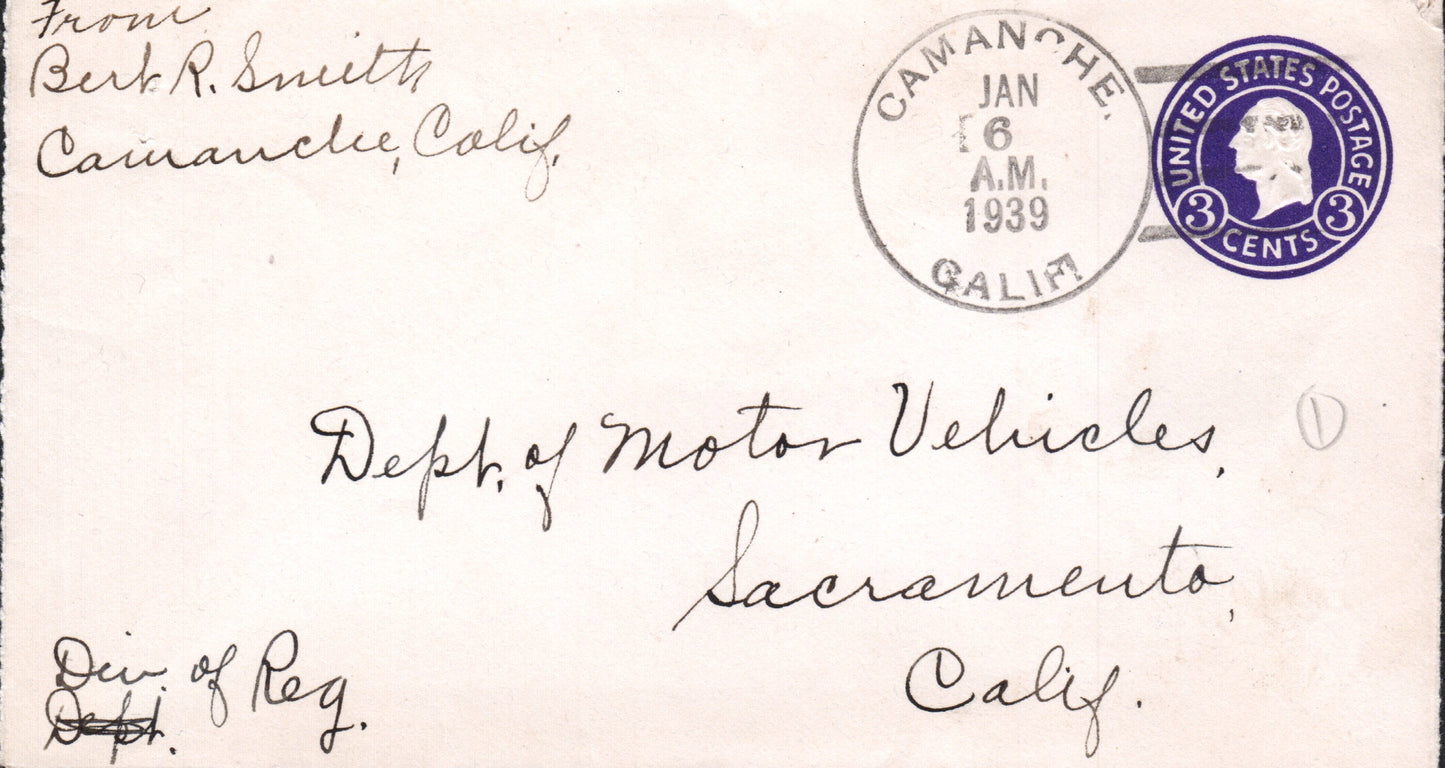 From
Bert R. Smith
Camanche, Calif.
CAMANCHE.
JAN
6
A.M.
1939
CALIF.
UNITED STATES POSTAGE
3 CENTS 3
1
Dept. of Motor Vehicles,
Sacramento,
Calif.
Div. of Reg.
Dept.